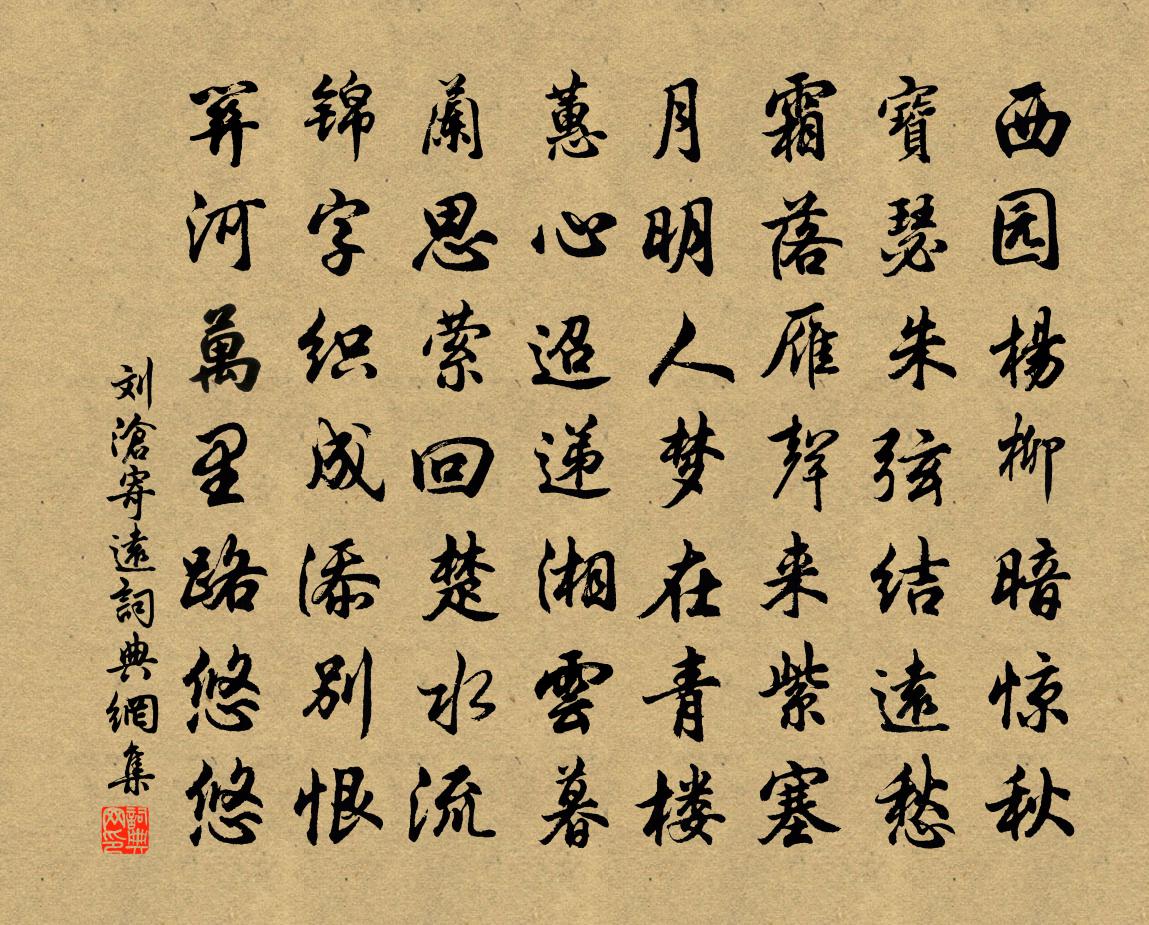 西园楊柳暗惊秋
寶瑟朱弦结遠愁
霜落雁聲来紫塞
月明人梦在青楼
蕙心迢递湘雲暮
蘭思萦回楚水流
锦字织成添别恨
關河萬里路悠悠
刘滄寄遠詞典網集
詞典網印